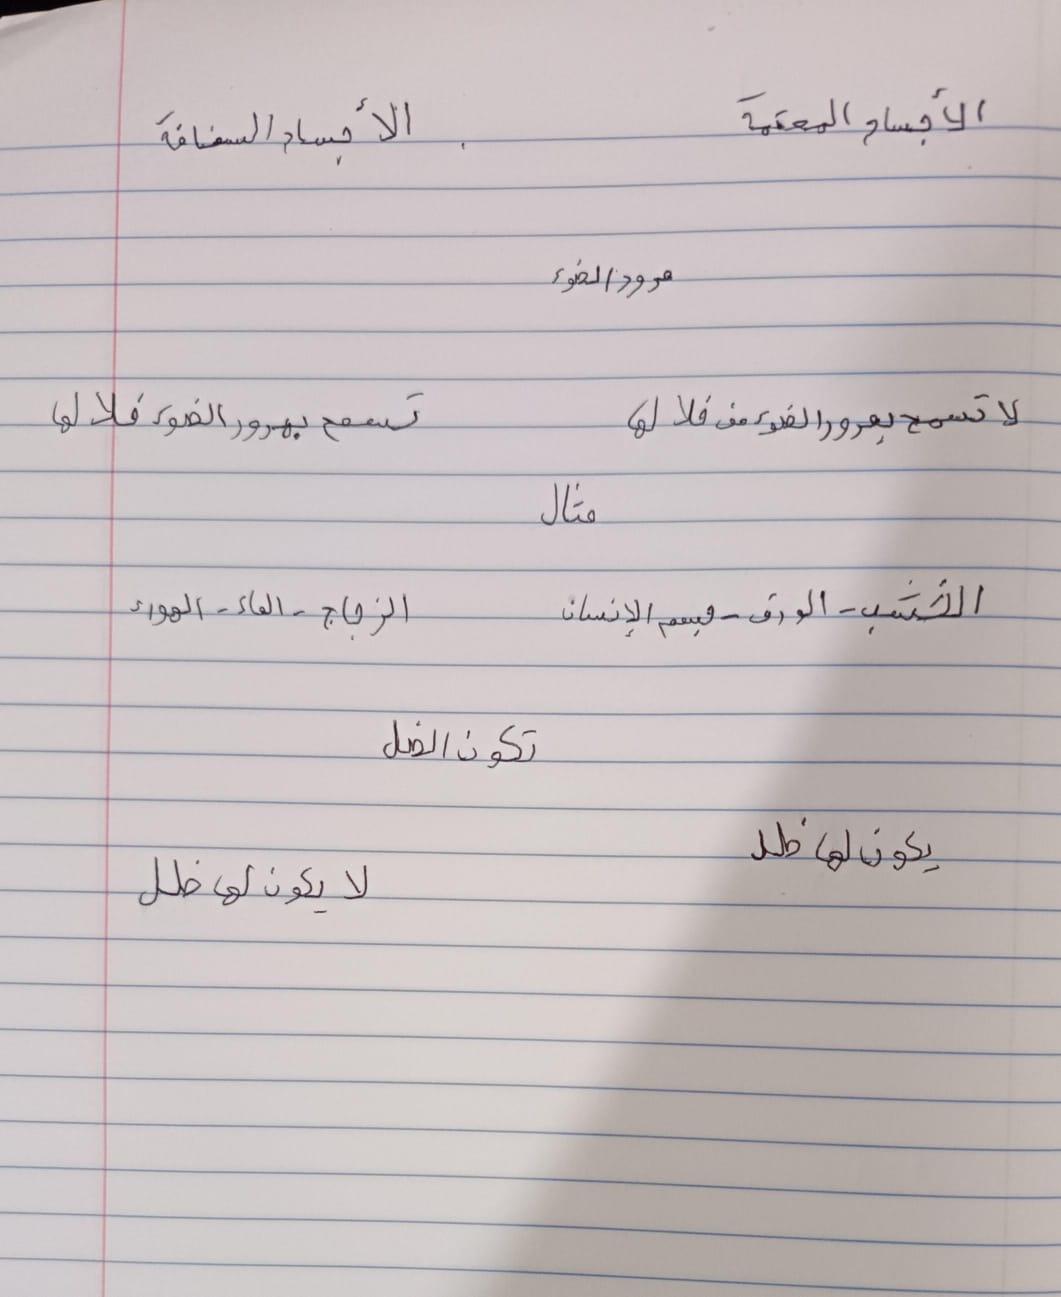 الأجسام المعتمة الأجسام الشفافة
مرور الضوء
لا تسمح بمرور الضوء من خلالها تسمح بمرور الضوء خلالها
مثال
الخشب - الورق - جسم الإنسان الزجاج - الماء - الهواء
تكون الضل
يكون لها ظل
لا يكون لها ظل